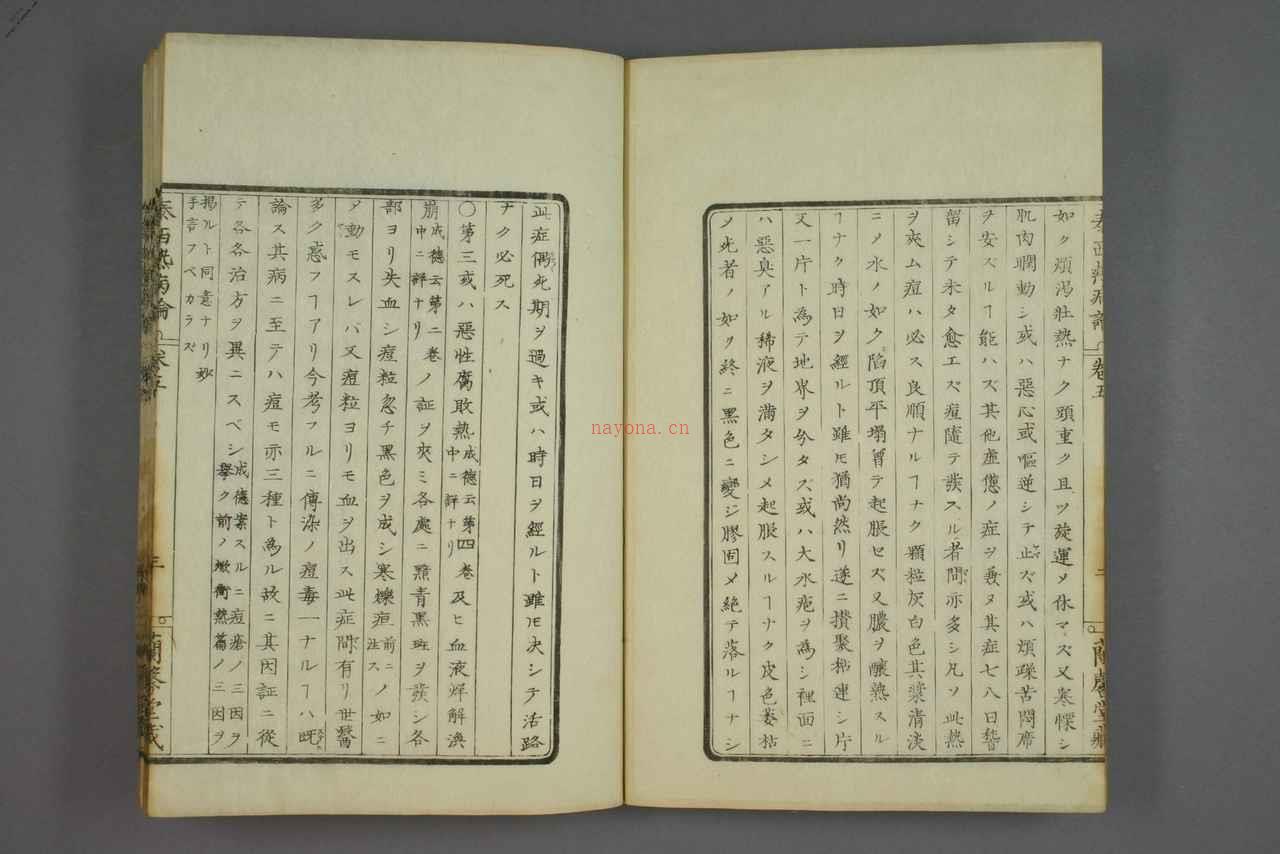 泰西熱病論 卷五 二 蘭馨堂藏
如ク煩渇壮熱ナク頭重ク且ツ旋運メ休マズ又寒慄シ
肌肉瞤動シ或ハ惡心或嘔逆シテ止ズ或ハ煩躁苦悶席
ヲ安ズルヿ能ハズ其他虚憊ノ症ヲ発ヌ其症七八日
留シテ未タ愈エズ痘隨テ発スル者間亦多シ凡ソ此熱
ヲ夾ム痘ハ必ス良順ナルヿナク顆粒灰白色其漿清淡
ニメ水ノ如ク陷頂平塌曽テ起脹セズ又膿ヲ釀熟スル
ヿナク時日ヲ經ルト雖モ猶尚然リ遂ニ攅聚連シ片
又一片ト為テ地界ヲ分タズ或ハ大水疱ヲ為シ裡面ニ
ハ惡臭アル稀液ヲ満タシメ起脹スルヿナク皮色萎枯
メ死者ノ如ク終ニ黒色ニ變ジ膠固メ絶テ落ルヿナシ
nayona.cn
此症偶死期ヲ過キ或ハ時日ヲ經ルト雖モ决シテ活路
ナク必死ス
〇第三或ハ惡性腐敗熱成德云第四卷及ヒ血液烊解渙
中ニ詳ナリ
崩成德云第二卷ノ証ヲ夾ミ各處ニ黯青黒斑ヲ發シ各
中ニ詳ナリ
部ヨリ失血シ痘粒忽チ黒色ヲ成シ寒爍疸前ニノ如ニ
注ス
メ動モスレバ又痘粒ヨリモ血ヲ出ス此症間有リ世醫
多ク惑フヿアリ今考フルニ傳染ノ痘毒一ナルヿハ既
論ス其病ニ至テハ痘モ亦三種ト為ル故ニ其因証ニ從
テ各各治方ヲ異ニスベシ成德案スルニ痘瘡ノ三因ヲ
擧ク前ノ焮衝熱篇ノ三因ヲ
掲ルト同意ナリ
手言フベカラズ
泰西熱病論 卷五 三 蘭馨堂藏